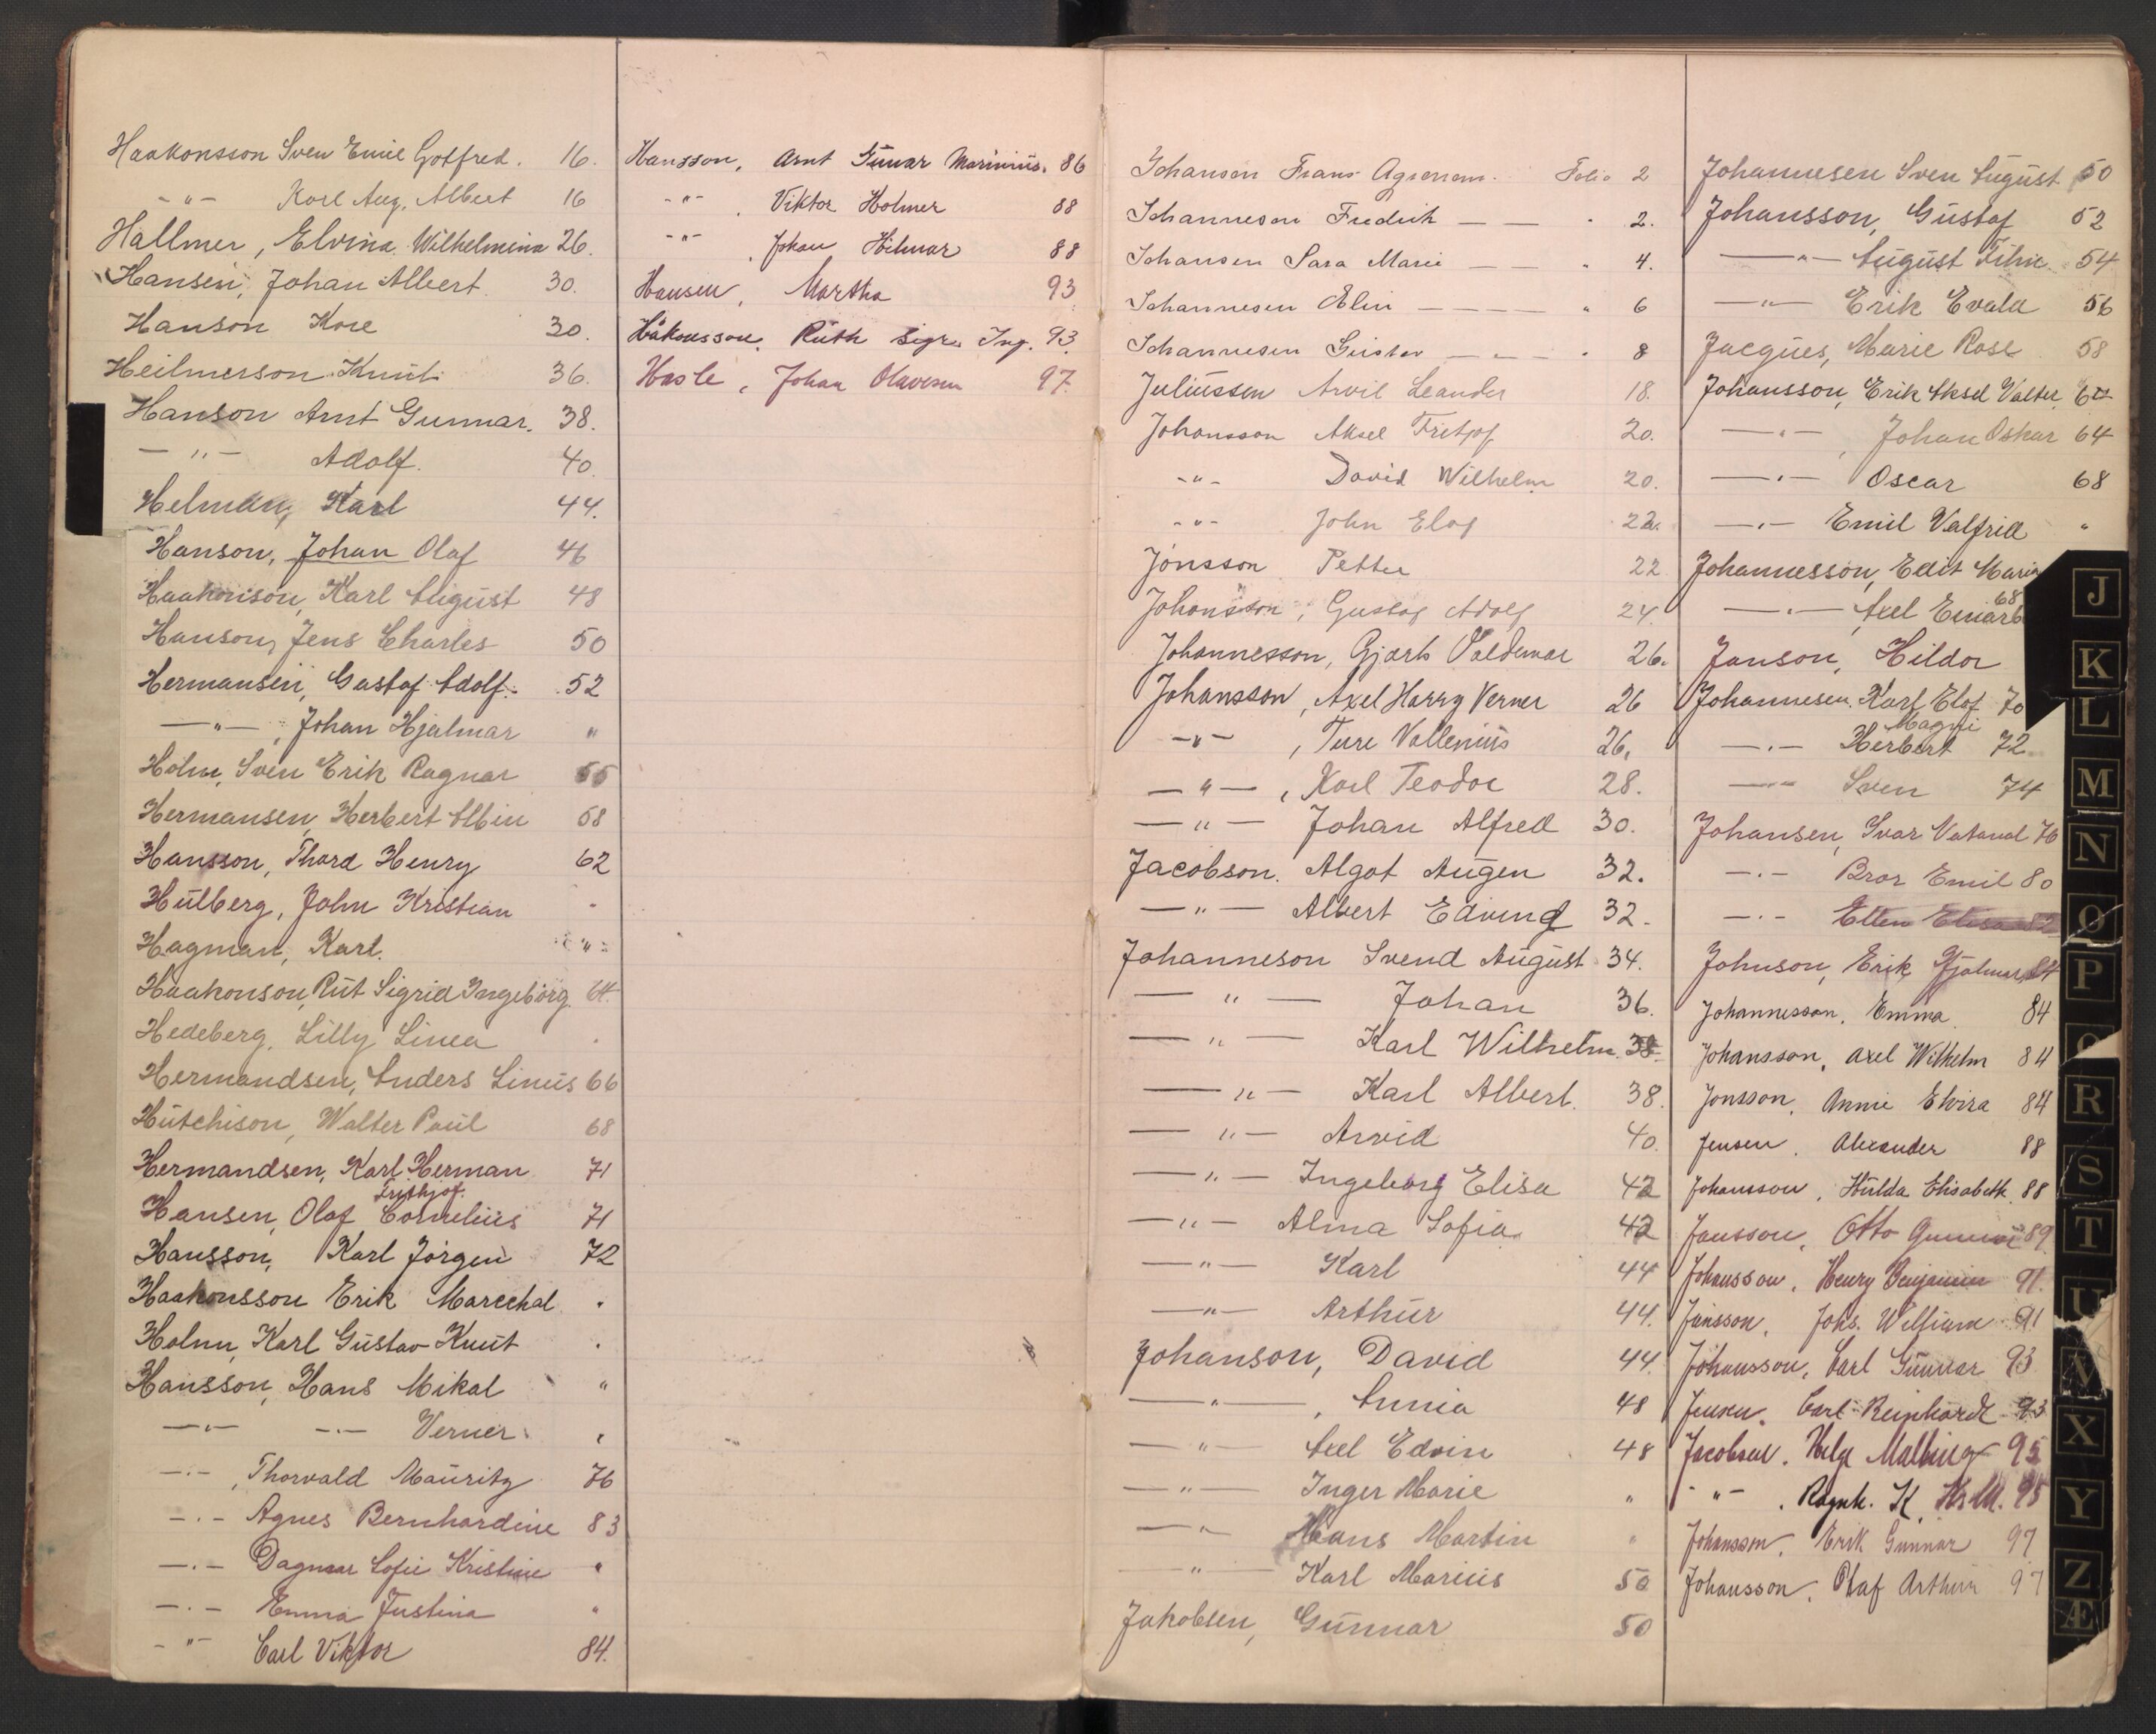 Haakonsson Sven Emil Gotfred. 16.
-"- Karl Aug. Albert 16
Hallmer, Elvina Wilhelmina 26.
Hansen, Johan Albert 30.
Hanson Kore 30.
Heilmerson Knut 36.
Hanson Arnt Gunnar. 38.
-"- Adolf. 40.
Helman, Karl 44.
Hanson, Johan Olaf 46
Haakonson, Karl August 48
Hanson, Jens Charles 50
Hermansen, Gustaf Adolf. 52
-"-, Johan Hjalmar "
Holm, Sven Erik Ragnar 55
Hermansen, Herbert Albin 58
Hansson, Thord Henry 62
Hülberg, John Kristian "
Hagman, Karl. "
Haakonson, Rut Sigrid Ingeborg 64.
Hedeberg, Lilly Linea .
Hermandsen, Anders Linus 66
Hutchison, Walter Paul 68
Hermandsen, Karl Herman 71
Frithjof.
Hansen, Olaf Cornelius 71
Hansson, Karl Jörgen 72
Haakonsson Erik Marechal .
Holm, Karl Gustav Knut .
Hansson, Hans Mikal "
-"- -"- Verner "
-"-, Thorvald Mauritz 76
-"- Agnes Bernhardine 83
-"- Dagmar Sofie Kristine "
-"- Emma Justina "
-"- Carl Viktor 84.
Hansson, Arnt Gunar Marinius. 86
-"-, Viktor Holmer 88
-"-, Johan Hilmar 88
Hansen, Martha 93
Håkonsson, Ruth Sigr. Ing. 93.
Hasle, Johan Olavesen 97.
Johansen Frans Folio 2
Johanneson Fredrik — — " 2.
Johansen Sara Marie — — " 4.
Johannesen Elin — — — " 6
Johannesen Gustav — — — " 8
Juliussen Arvil Leander 18.
Johansson Aksel Fritjof 20.
-"- David Wilhelm 20.
-"- John Elof 22.
Jonsson Petter 22
Johansson, Gustaf Adolf 24.
Johannesson, Gjærts Valdemar 26.
Johansson, Axel Harry Verner 26
-"-, Ture Vallenius 26.
-"-, Karl Teodor 28.
-"- Johan Alfred 30.
Jacobson. Algot Augen 32.
-"- Albert Edvind 32.
Johanneson Svend August 34.
-"- Johan 36.
-"- Karl Wilhelm 38.
-"- Karl Albert. 38.
-"- Arvid 40.
-"- Ingeborg Elisa 42
-"- Alma Sofia 42
-"- Karl 44
-"- Arthur 44.
Johanson, David 44.
-"-, Annia 48
-"- Axel Edvin 48
-"- Inger Marie "
-"- Hans Martin "
-"- Karl Marius 50
Jakobsen, Gunnar 50
Johannesen Sven August 50
Johansson, Gustaf 52
-"- August Filin 54
-"- Erik Evald 56
Jacques, Marie Rose 58
Johansson, Erik Aksel Valter,
-"-, Johan Oskar 64
-"- Oscar 68
-"- Emil Valfrid "
Johannesson, Edit Maria
68
-"- Axel Einar
Janson, Hildor
Johannesen, Karl Elof 70
Magni
-"- Herbert 72
-"- Sven 74
Johansen, Ivar Natanael 76
-"- Bror Emil 80
-"- Ellen Elisa 82
Johnson, Erik Hjalmar, 84
Johannesson, Emma 84
Johansson, Axel Wilhelm 84
Jonsson, Annie Elvira 84
Jensen, Alexander 88
Johansson, Hulda Elisabeth. 88
Jansson, Otto Gunnar 89
Johansson, Henry Benjamin 91.
Jansson, Johs. William 91
Johansson, Carl Gunnar 93
Jensen, Carl Reinhardt 93
Jacobsen, Helge Malling 95
-"-, Ragnh. K. 95
Johansson, Erik Gunnar 97
Johansson, Olaf Arthur 97
J
K
L
M
N
O
P
Q
R
S
T
U
V
X
Y
Z
Æ